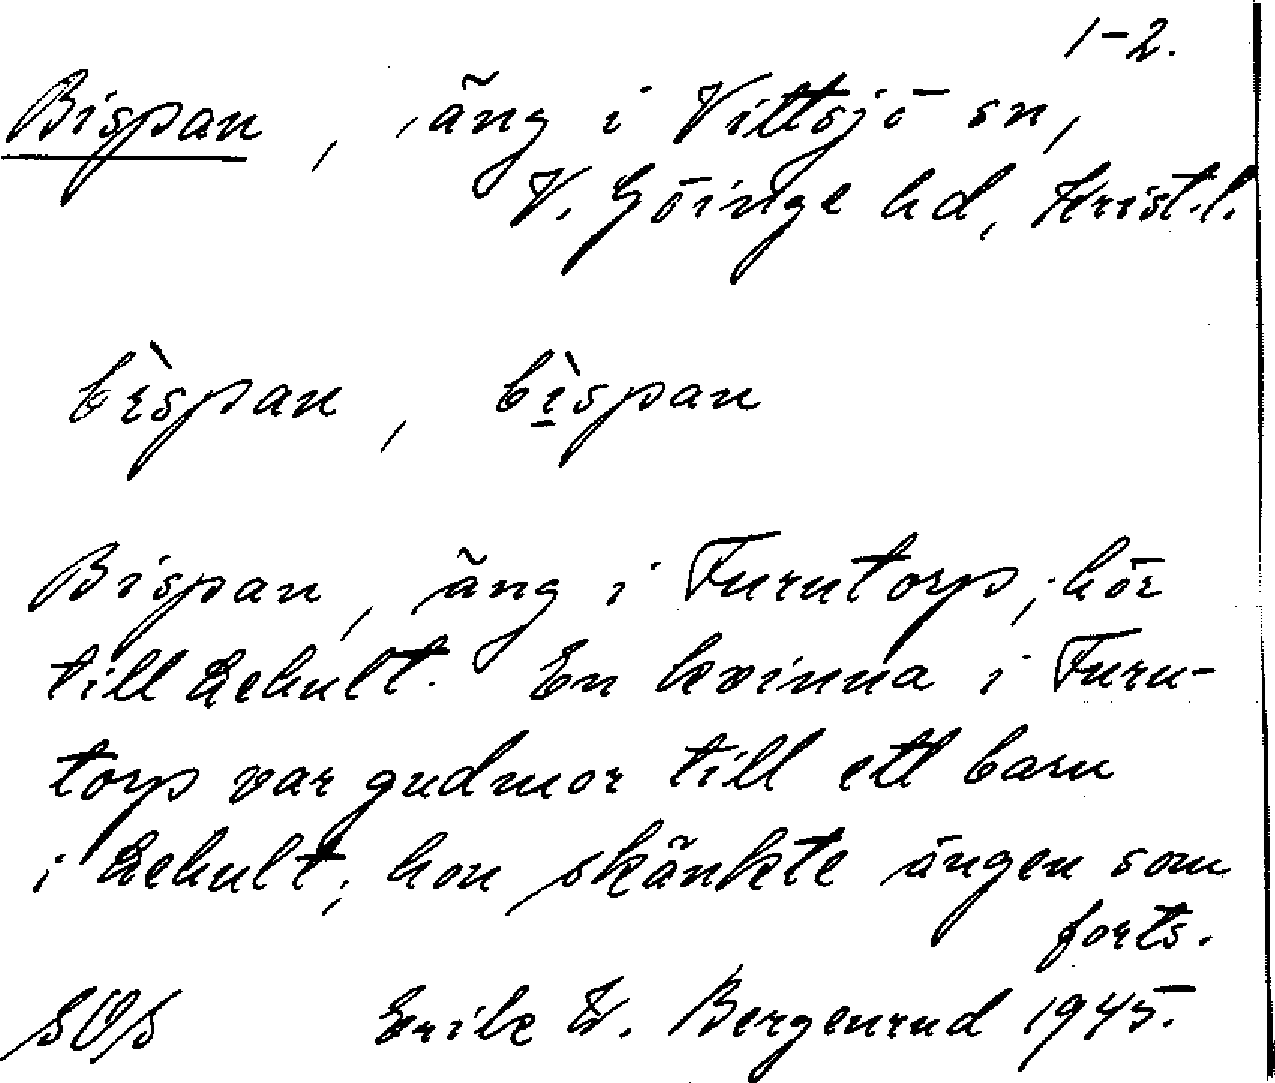 1-2.
Bispan, äng i Vittsjö sn,
V. Göinge hd, Krist.l.
bìspan, bìspan
Bispan, äng i Furutorp; hör
till Ekhult. En kvinna i Furu-
torp var gudmor till ett barn
i Ekhult; hon skänkte ängen som
forts.
SOS Erik W. Bergenrud 1945.